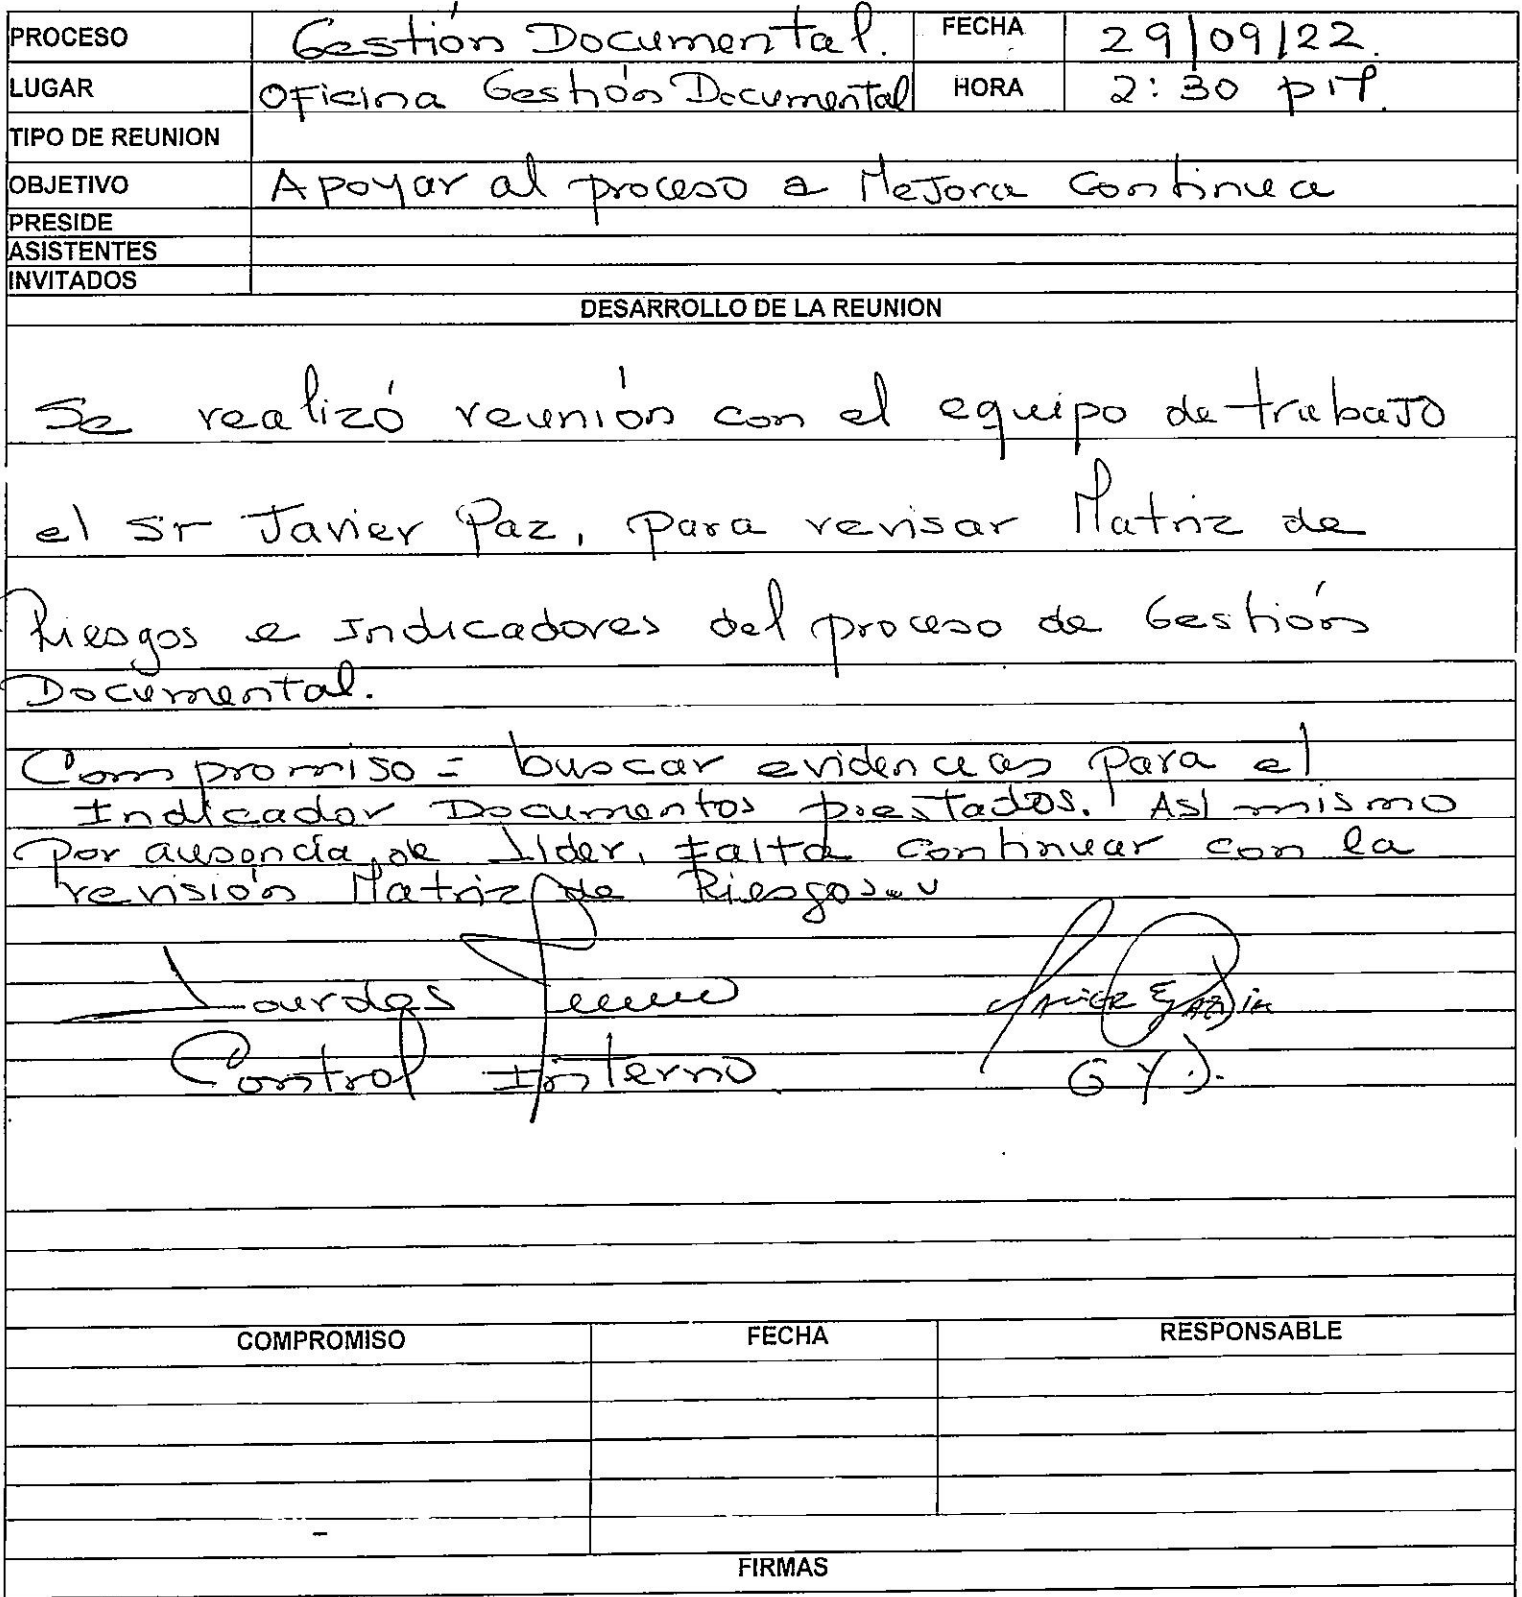 PROCESO Gestión Documental. FECHA 29/09/22.
LUGAR Oficina Gestión Documental HORA 2:30 pm.
TIPO DE REUNION
OBJETIVO Apoyar al proceso a Mejora Continua
PRESIDE
ASISTENTES
INVITADOS
DESARROLLO DE LA REUNION
Se realizó reunión con el equipo de trabajo
el Sr Javier Paz, para revisar Matriz de
Riesgos e Indicadores del proceso de Gestión
Documental.
Compromiso = buscar evidencias para el
Indicador Documentos prestados. Así mismo
por ausencia de líder, falta continuar con la
revisión Matriz de Riesgos
Lourdes
Control Interno G Y D.
COMPROMISO FECHA RESPONSABLE
FIRMAS